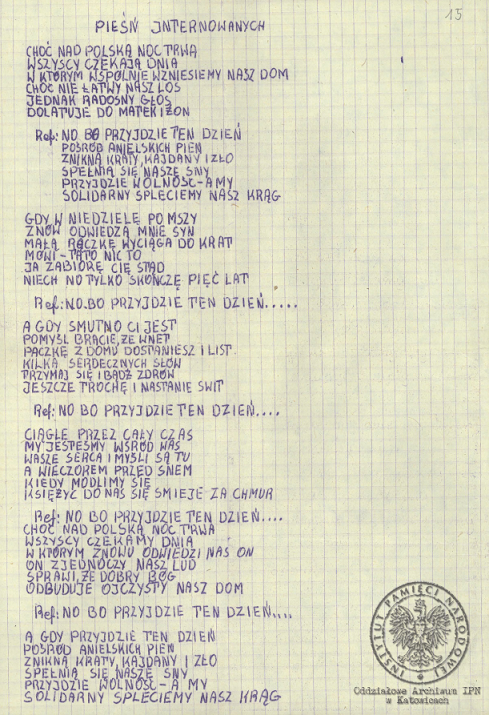 15
PIEŚŃ INTERNOWANYCH
CHOĆ NAD POLSKĄ NOC TRWA
WSZYSCY CZEKAJĄ DNIA
W KTÓRYM WSPÓLNIE WZNIESIEMY NASZ DOM
CHOĆ NIE ŁATWY NASZ LOS
JEDNAK RADOSNY GŁOS
DOLATUJE DO MATEK I ŻON
Ref: NO BO PRZYJDZIE TEN DZIEŃ
POŚRÓD ANIELSKICH PIEŃ
ZNIKNĄ KRATY, KAJDANY I ZŁO
SPEŁNIĄ SIĘ NASZE SNY
PRZYJDZIE WOLNOŚĆ - A MY
SOLIDARNY SPLECIEMY NASZ KRĄG
GDY W NIEDZIELĘ PO MSZY
ZNÓW ODWIEDZĄ MNIE SYN
MAŁĄ RĄCZKĘ WYCIĄGA DO KRAT
MÓWI - TATO NIC TO
JA ZABIORĘ CIĘ STĄD
NIECH NO TYLKO SKOŃCZĘ PIĘĆ LAT
Ref: NO BO PRZYJDZIE TEN DZIEŃ.....
A GDY SMUTNO CI JEST
POMYŚL BRACIE, ŻE WNET
PACZKĘ Z DOMU DOSTANIESZ I LIST
KILKA SERDECZNYCH SŁÓW
TRZYMAJ SIĘ I BĄDŹ ZDRÓW
JESZCZE TROCHĘ I NASTANIE ŚWIT
Ref: NO BO PRZYJDZIE TEN DZIEŃ....
CIĄGLE PRZEZ CAŁY CZAS
MY JESTEŚMY WŚRÓD WAS
WASZE SERCA I MYŚLI SĄ TU
A WIECZOREM PRZED SNEM
KIEDY MODLIMY SIĘ
KSIĘŻYC DO NAS SIĘ ŚMIEJE ZA CHMUR
Ref: NO BO PRZYJDZIE TEN DZIEŃ....
CHOĆ NAD POLSKĄ NOC TRWA
WSZYSCY CZEKAMY DNIA
W KTÓRYM ZNOWU ODWIEDZI NAS ON
ON ZJEDNOCZY NASZ LUD
SPRAWI, ŻE DOBRY BÓG
ODBUDUJE OJCZYSTY NASZ DOM
Ref: NO BO PRZYJDZIE TEN DZIEŃ....
A GDY PRZYJDZIE TEN DZIEŃ
POŚRÓD ANIELSKICH PIEŃ
ZNIKNĄ KRATY, KAJDANY I ZŁO
SPEŁNIĄ SIĘ NASZE SNY
PRZYJDZIE WOLNOŚĆ - A MY
SOLIDARNY SPLECIEMY NASZ KRĄG
INSTYTUT PAMIĘCI NARODOWEJ
Oddziałowe Archiwum IPN
w Katowicach